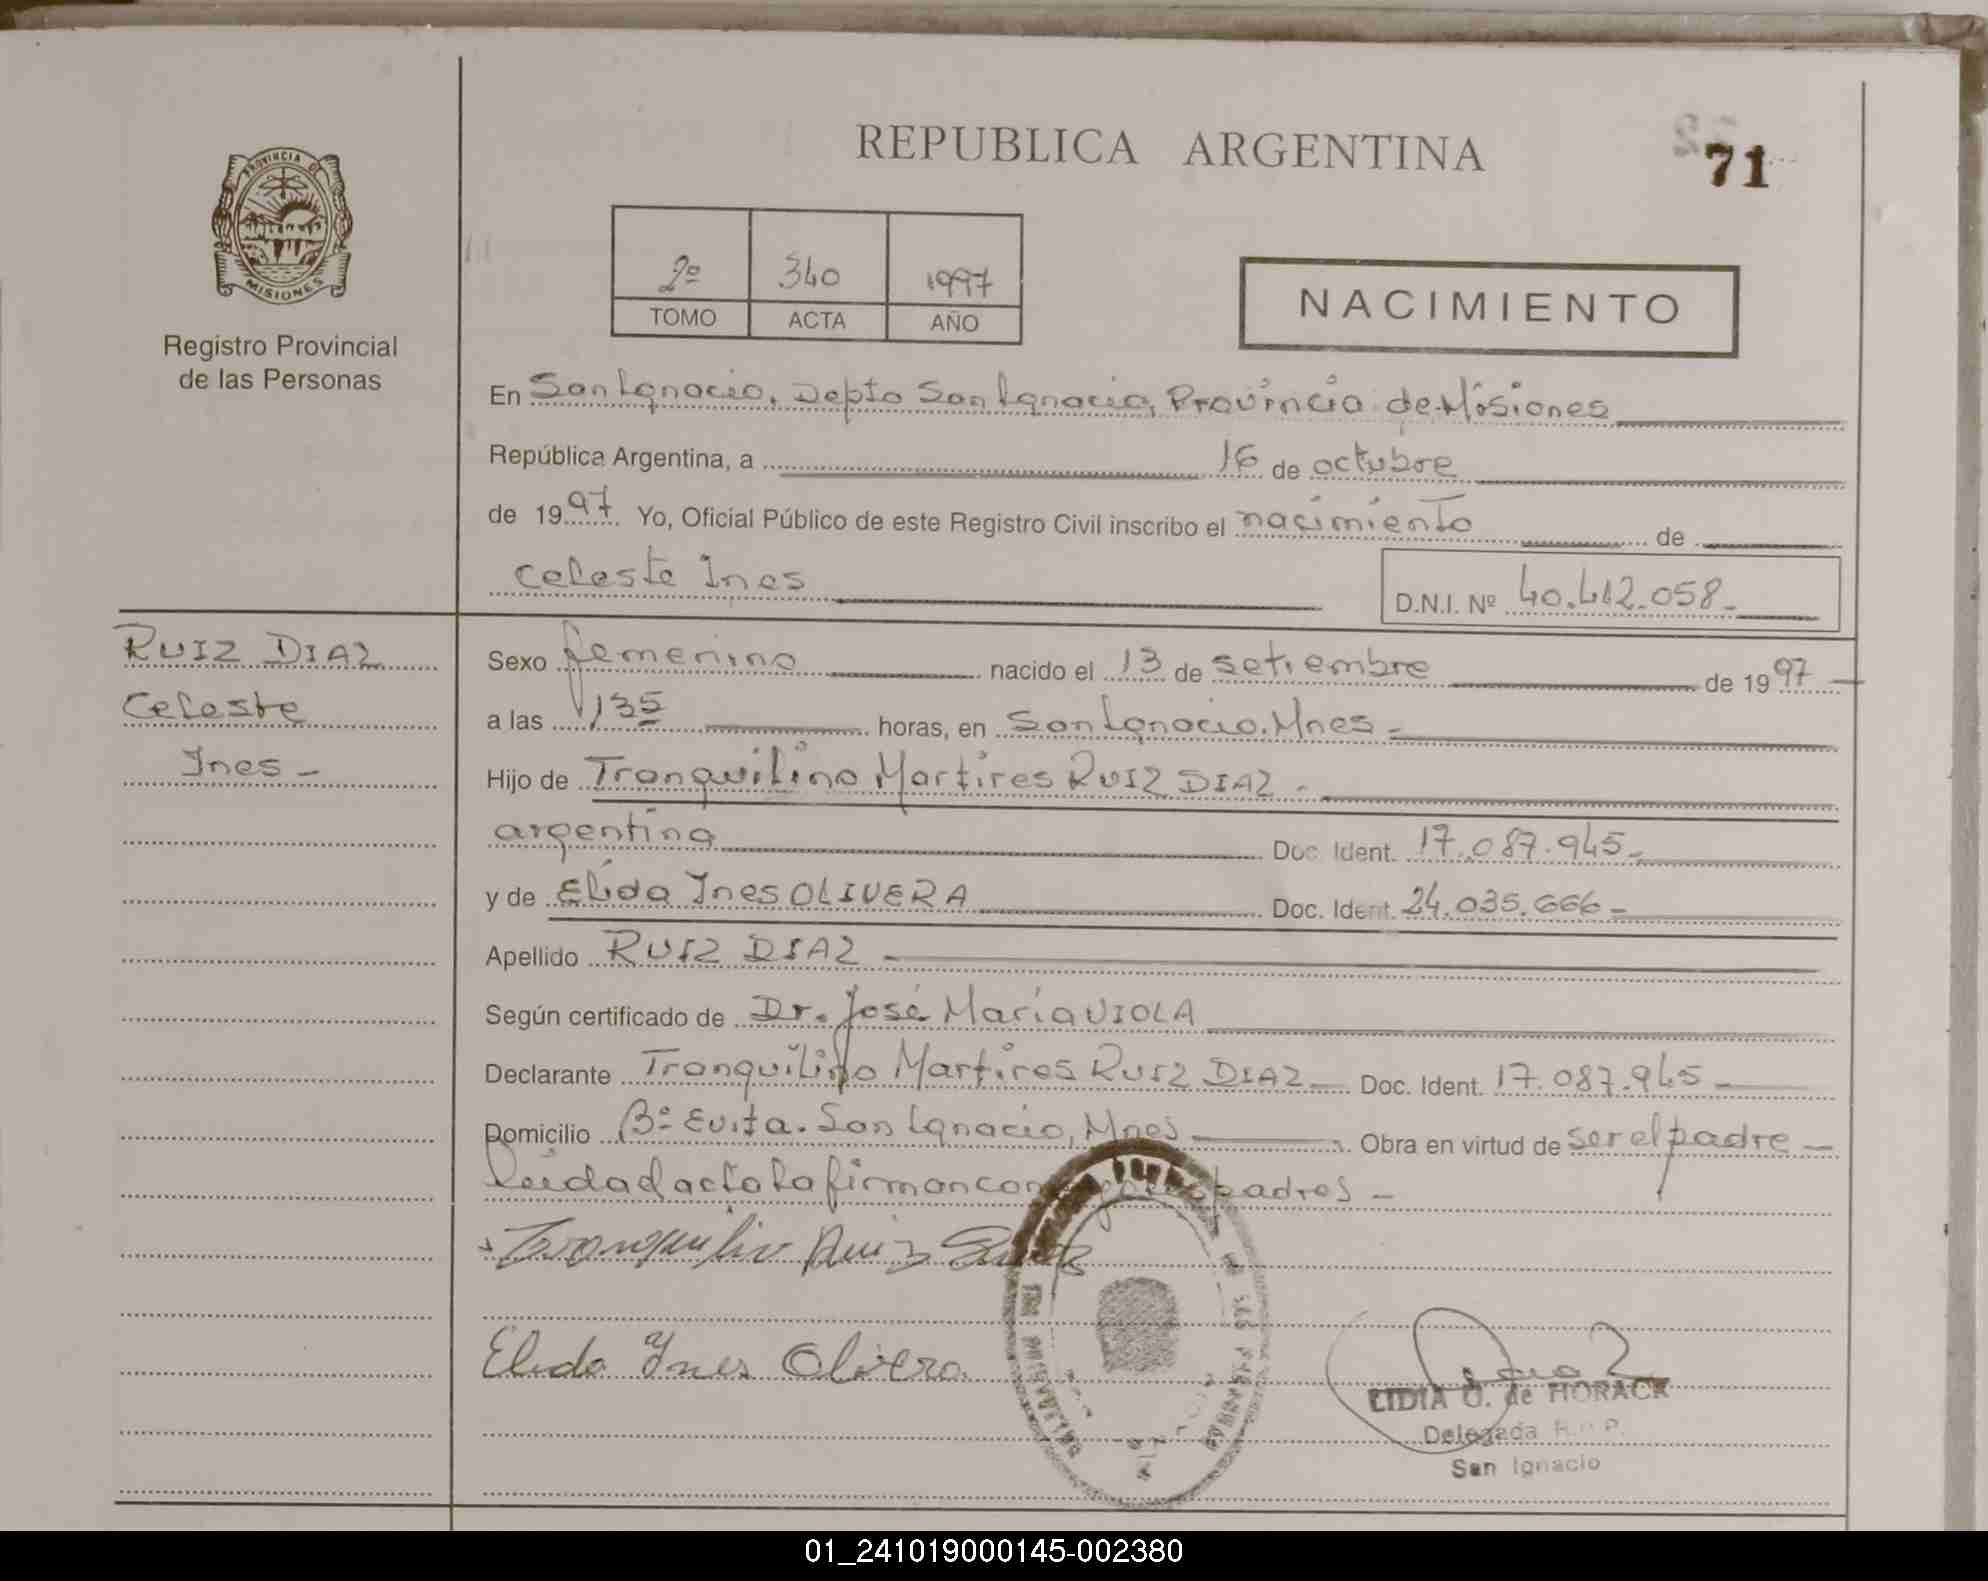 REPUBLICA ARGENTINA
71
PROVINCIA DE
MISIONES
Registro Provincial
de las Personas
2º 340 1997
TOMO ACTA AÑO
NACIMIENTO
En San Ignacio, Depto San Ignacio, Provincia de Misiones
República Argentina, a 16 de octubre
de 1997. Yo, Oficial Público de este Registro Civil inscribo el nacimiento de
Celeste Ines
D.N.I. Nº 40.412.058-
RUIZ DIAZ
Celeste
Ines -
Sexo femenino nacido el 13 de setiembre de 1997 -
a las 1,35 horas, en San Ignacio. Mnes -
Hijo de Tranquilino Martires RUIZ DIAZ -
argentina Doc. Ident. 17.087.945-
y de Elida Ines OLIVERA Doc. Ident. 24.035.666-
Apellido RUIZ DIAZ -
Según certificado de Dr. José María VIOLA
Declarante Tranquilino Martires RUIZ DIAZ Doc. Ident. 17.087.945-
Domicilio Bº Evita. San Ignacio, Mnes Obra en virtud de ser el padre -
Leida el acta la firman padres -
Tranquilino Ruiz
Elida Ynes Olivera.
LIDIA O. de HORACK
Delegada R. P.
San Ignacio
01_241019000145-002380